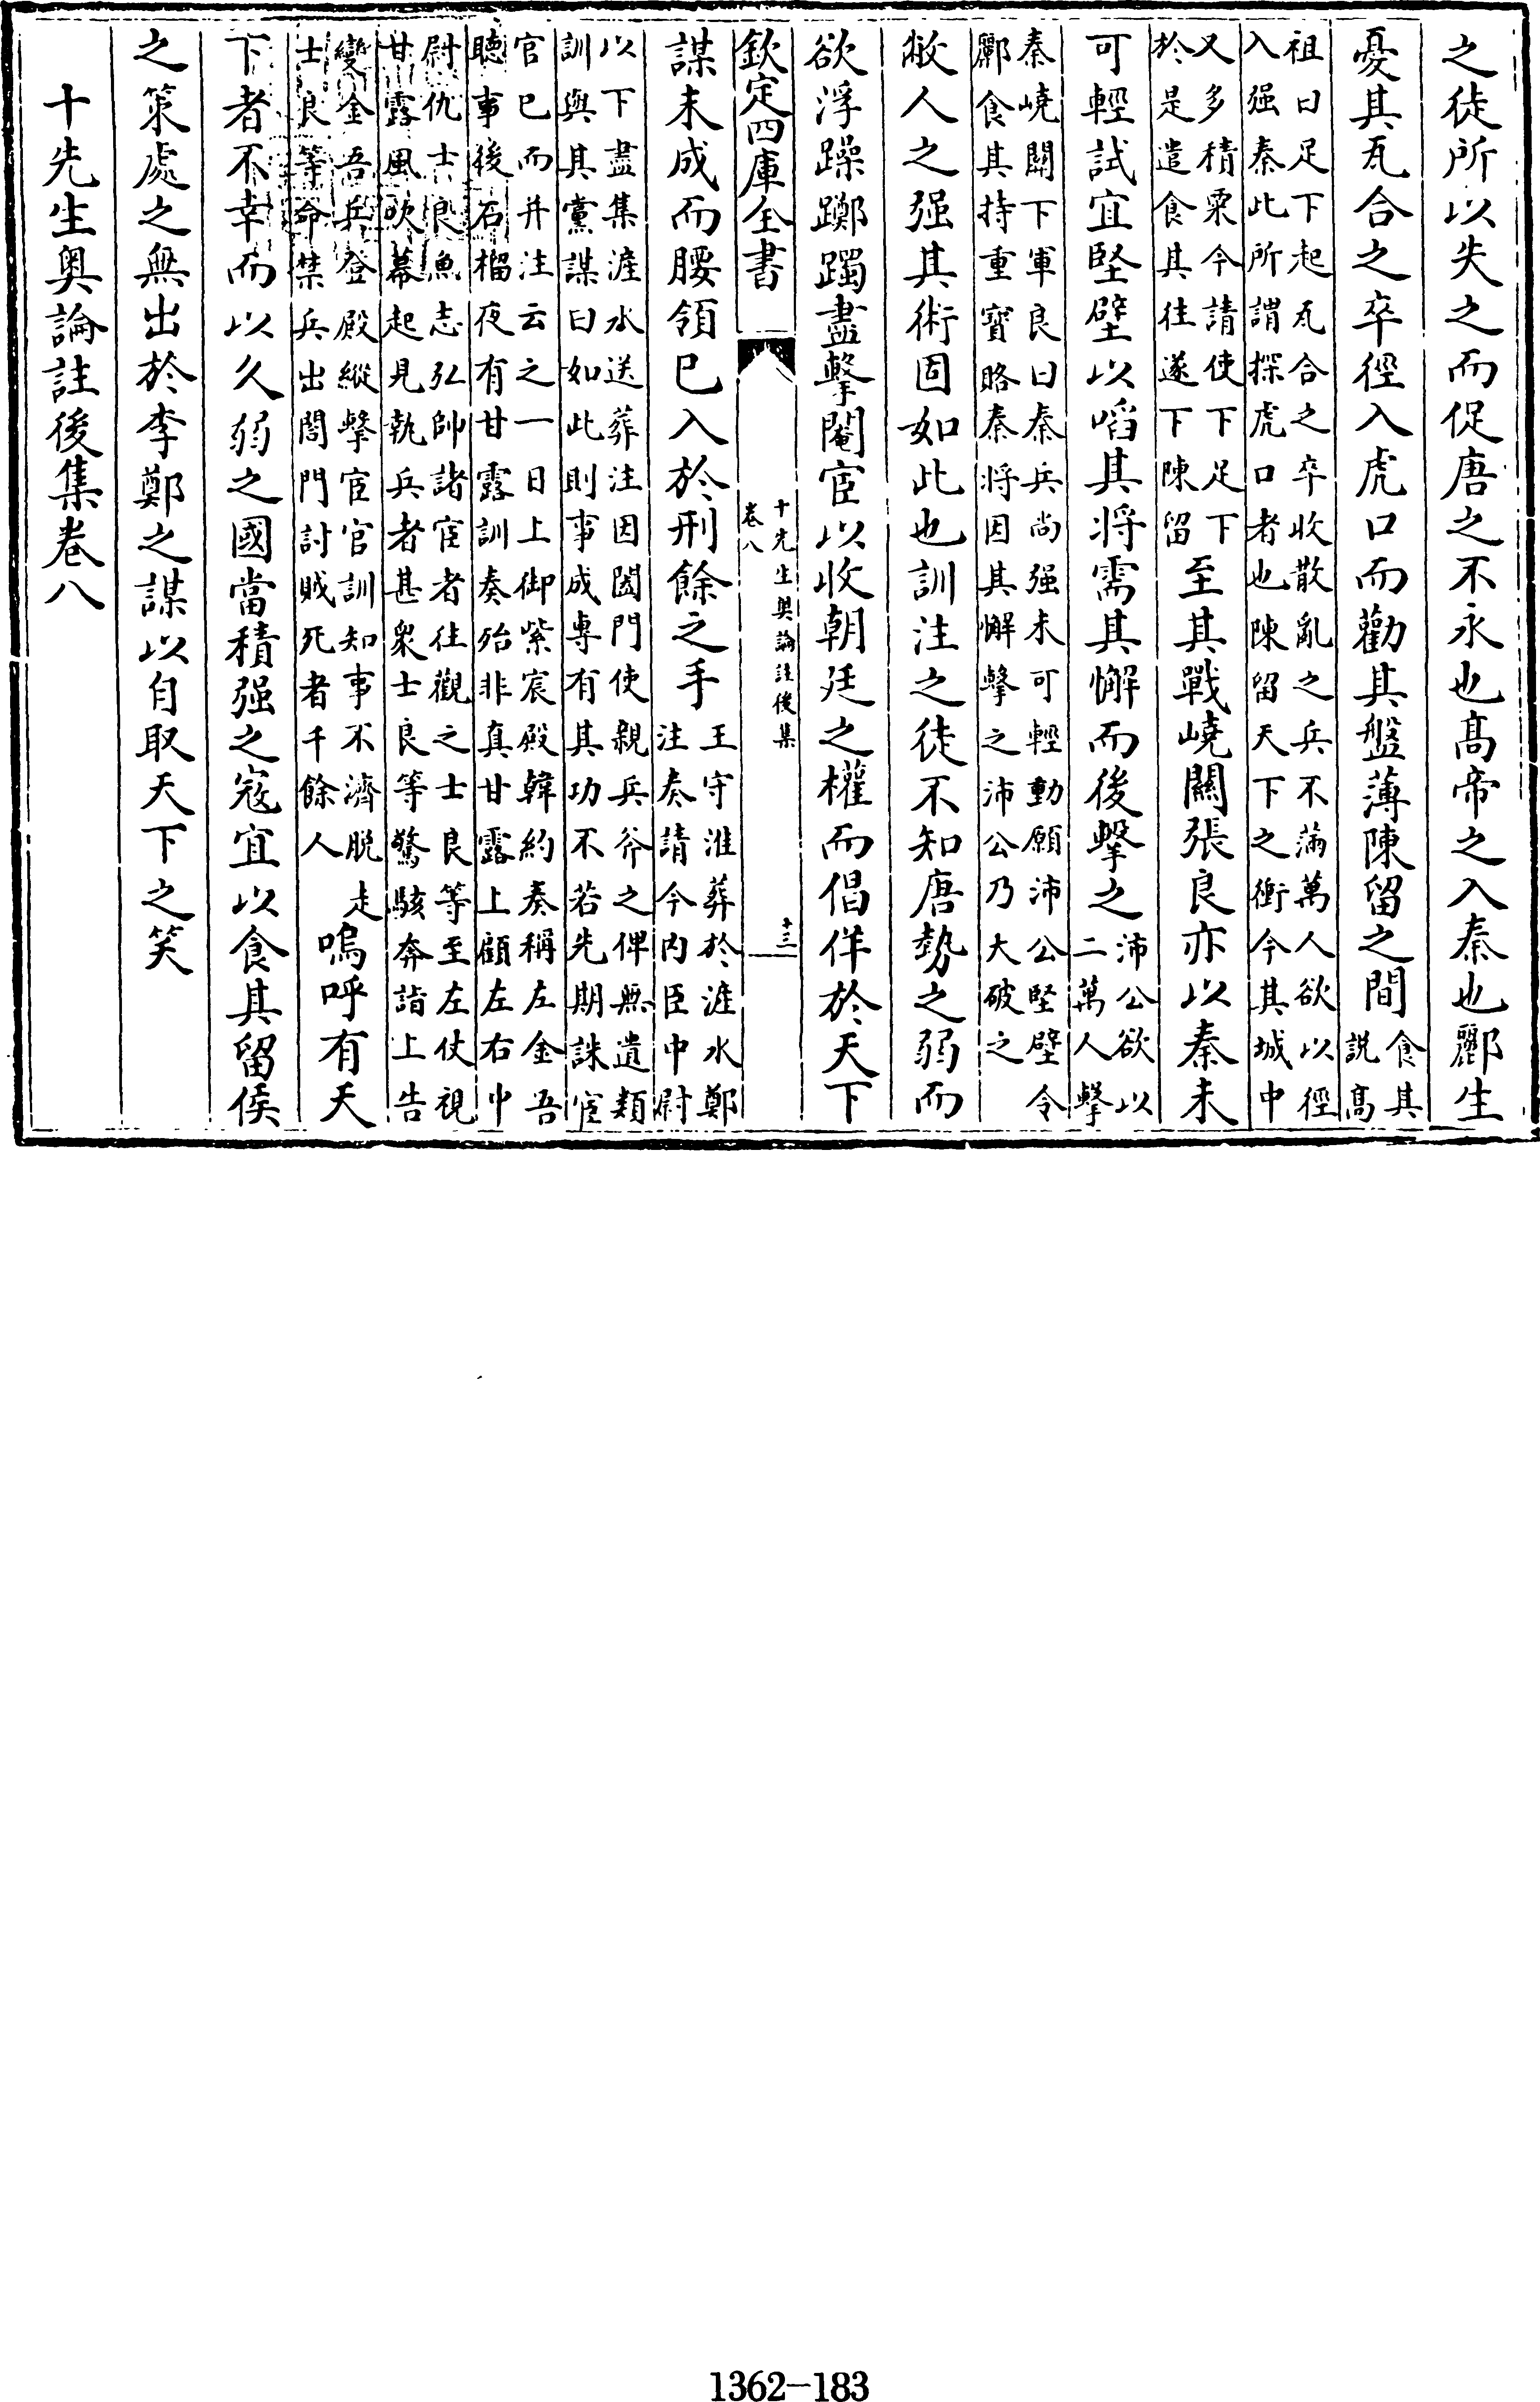 之徒所以失之而促唐之不永也髙帝之入秦也酈生
憂其瓦合之卒徑入虎口而勸其盤薄陳留之間
食其
說髙
祖曰足下起瓦合之卒收散亂之兵不滿萬人欲以徑
入强秦此所謂探虎口者也陳留天下之衝今其城中
又多積粟今請使下足下
於是遣食其往遂下陳留
至其戰嶢關張良亦以秦未
可輕試宜堅壁以啗其将需其懈而後擊之
沛公欲以
二萬人擊
秦嶢關下軍良曰秦兵尚强未可輕動願沛公堅壁令
酈食其持重寳賂秦将因其懈擊之沛公乃大破之
敝人之强其術固如此也訓注之徒不知唐勢之弱而
欲浮躁躑躅盡擊閹宦以收朝廷之權而倡佯於天下
欽定四庫全書
十先生奥論註後集
卷八
十三
謀未成而腰領已入於刑餘之手
王守淮葬於滻水鄭
注奏請今内臣中尉
以下盡集滻水送葬注因闔門使親兵斧之俾無遺類
訓與其黨謀曰如此則事成專有其功不若先期誅宦
官已而并注云之一日上御紫宸殿韓約奏稱左金吾
聽事後石榴夜有甘露訓奏殆非真甘露上顧左右中
尉仇士良魚志弘帥諸宦者往觀之士良等至左仗視
甘露風吹幕起見執兵者甚衆士良等驚駭奔詣上告
變金吾兵登殿縱擊宦官訓知事不濟脫走
士良等命禁兵出閤門討賊死者千餘人
嗚呼有天
下者不幸而以久弱之國當積强之寇宜以食其留侯
之策處之無出於李鄭之謀以自取天下之笑
十先生奥論註後集卷八
1362-183